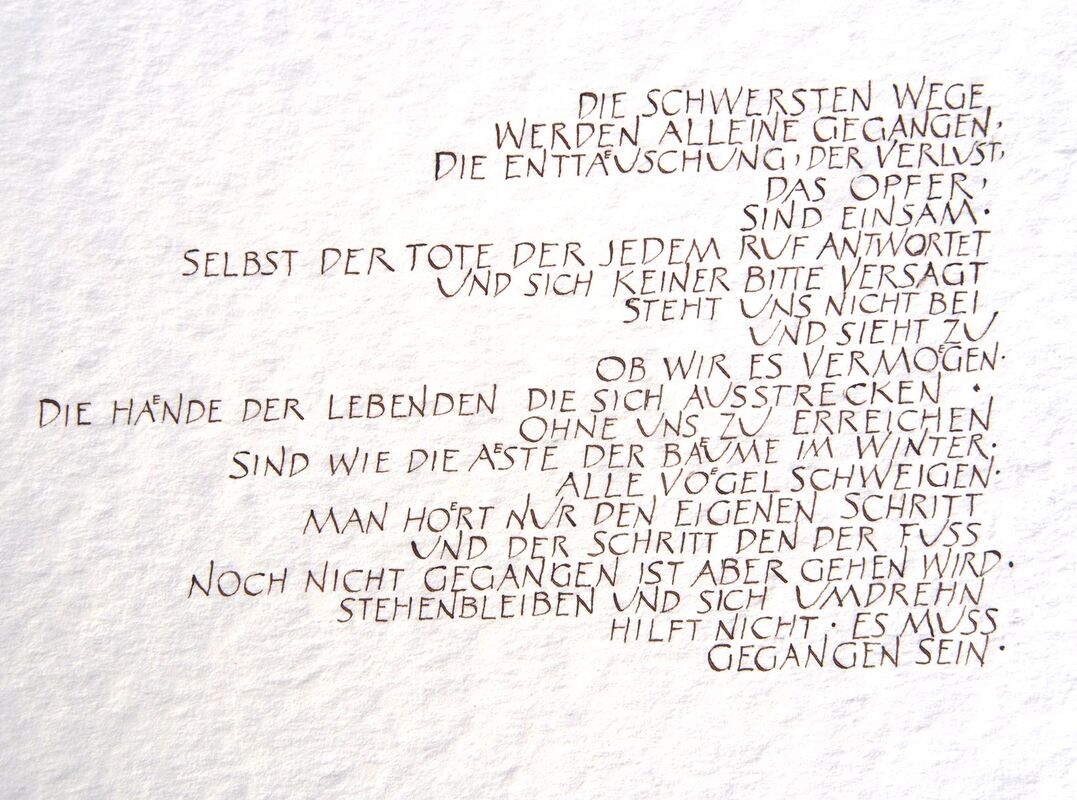 DIE SCHWERSTEN WEGE
WERDEN ALLEINE GEGANGEN,
DIE ENTTAᴱUSCHUNG, DER VERLUST,
DAS OPFER,
SIND EINSAM·
SELBST DER TOTE DER JEDEM RUF ANTWORTET
UND SICH KEINER BITTE VERSAGT
STEHT UNS NICHT BEI
UND SIEHT ZU
OB WIR ES VERMOᴱGEN·
DIE HAᴱNDE DER LEBENDEN DIE SICH AUSSTRECKEN ·
OHNE UNS ZU ERREICHEN
SIND WIE DIE AᴱSTE DER BAᴱUME IM WINTER·
ALLE VOᴱGEL SCHWEIGEN·
MAN HOᴱRT NUR DEN EIGENEN SCHRITT
UND DER SCHRITT DEN DER FUSS
NOCH NICHT GEGANGEN IST ABER GEHEN WIRD·
STEHENBLEIBEN UND SICH UMDREHN
HILFT NICHT · ES MUSS
GEGANGEN SEIN·